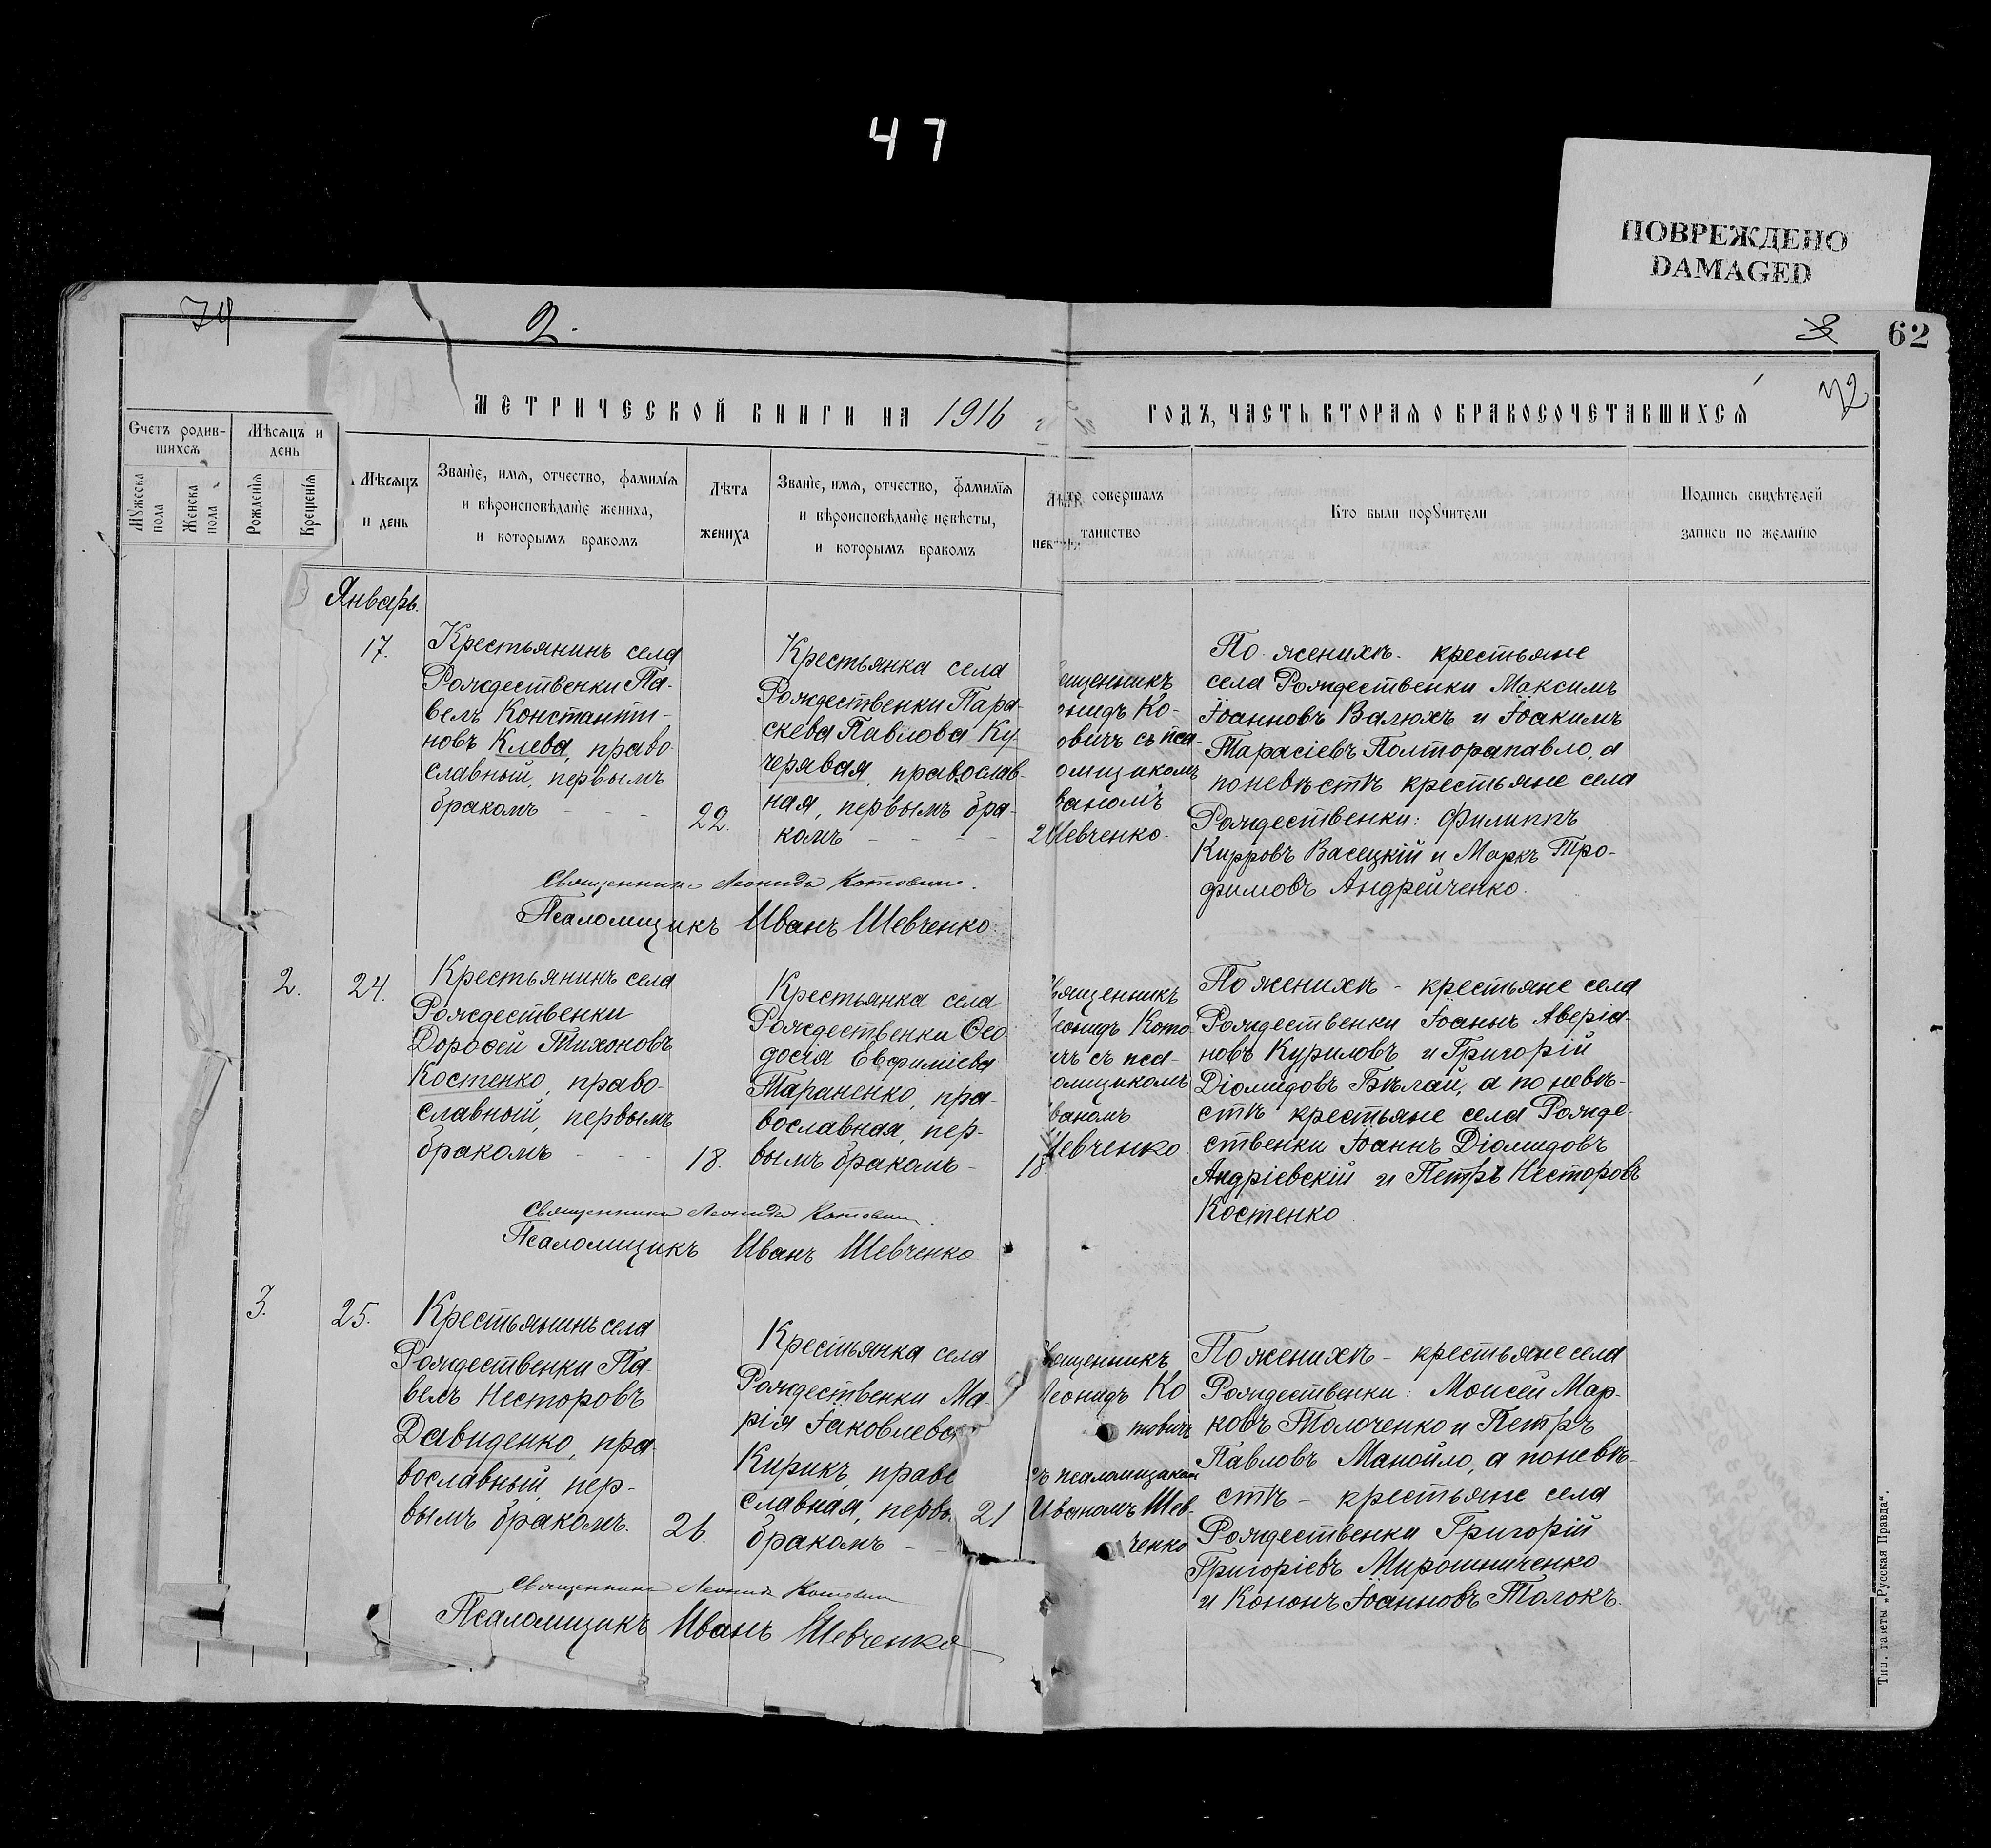 47
ПОВРЕЖДЕНО
DAMAGED
62
2.
72
МЕТРИЧЕСКОЙ КНИГИ НА 1916
ГОДЪ, ЧАСТЬ ВТОРАЯ О БРАКОСОЧЕТАВШИХСЯ
Счетъ родив-
шихся
Мужеска пола
Женска пола
Мѣсяцъ и
день
Рожденія
Крещенія
Мѣсяцъ
и день
Званіе, имя, отчество, фамилія
и вѣроисповѣданіе жениха,
и которымъ бракомъ
Лѣта
жениха
Званіе, имя, отчество, фамилія
и вѣроисповѣданіе невѣсты,
и которымъ бракомъ
совершалъ
таинство
Кто были поручители
Подпись свидѣтелей
записи по желанію
Январь.
17.
Крестьянинъ села
Рождественки Па-
велъ Константи-
новъ Клева, право-
славный, первымъ
бракомъ
22.
Крестьянка села
Рождественки Пара-
скева Павлова Ку-
черявая, православ-
ная, первымъ бра-
комъ
ященникъ
онидъ Ко-
овичъ съ пса-
омщикомъ
ваномъ
Шевченко.
По женихѣ - крестьяне
села Рождественки Максимъ
Іоанновъ Валюхъ и Іоакимъ
Тарасіевъ Полторапавло, а
по невѣстѣ крестьяне села
Рождественки: Филиппъ
Кирровъ Васецкій и Маркъ Тро-
фимовъ Андрейченко.
Священникъ Леонидъ Котовичъ.
Псаломщикъ Иванъ Шевченко
2.
24.
Крестьянинъ села
Рождественки
Дорофей Тихоновъ
Костенко, право-
славный, первымъ
бракомъ
18.
Крестьянка села
Рождественки Ѳео
досія Евфиміева
Тараненко, пра-
вославная, пер-
вымъ бракомъ -
18.
вященникъ
Леонидъ Кото
ичъ съ пса-
омщикомъ
ваномъ
Шевченко.
По женихѣ - крестьяне села
Рождественки Іоаннъ Аверіа-
новъ Куриловъ и Григорій
Діомидовъ Бѣлай, а по невѣ-
стѣ крестьяне села Рожде-
ственки Іоаннъ Діомидовъ
Андріевскій и Петръ Несторовъ
Костенко
Священникъ Леонидъ Котовичъ.
Псаломщикъ Иванъ Шевченко
3.
25.
Крестьянинъ села
Рождественки Па-
велъ Несторовъ
Давиденко, пра-
вославный, пер-
вымъ бракомъ.
26.
Крестьянка села
Рождественки Ма-
рія Іаковлева
Кирикъ, право
славная, первы
бракомъ - -
21
вященникъ
Леонидъ Ко
товичъ
съ псаломщикомъ
Иваномъ Шев-
ченко
По женихѣ - крестьяне села
Рождественки: Моисей Мар-
ковъ Толоченко и Петръ
Павловъ Манойло, а по невѣ-
стѣ - крестьяне села
Рождественки Григорій
Григоріевъ Мирошниченко
и Кононъ Іоанновъ Толокъ.
Священникъ Леонидъ Котовичъ
Псаломщикъ Иванъ Шевченко
Тип. газеты „Русская Правда“.